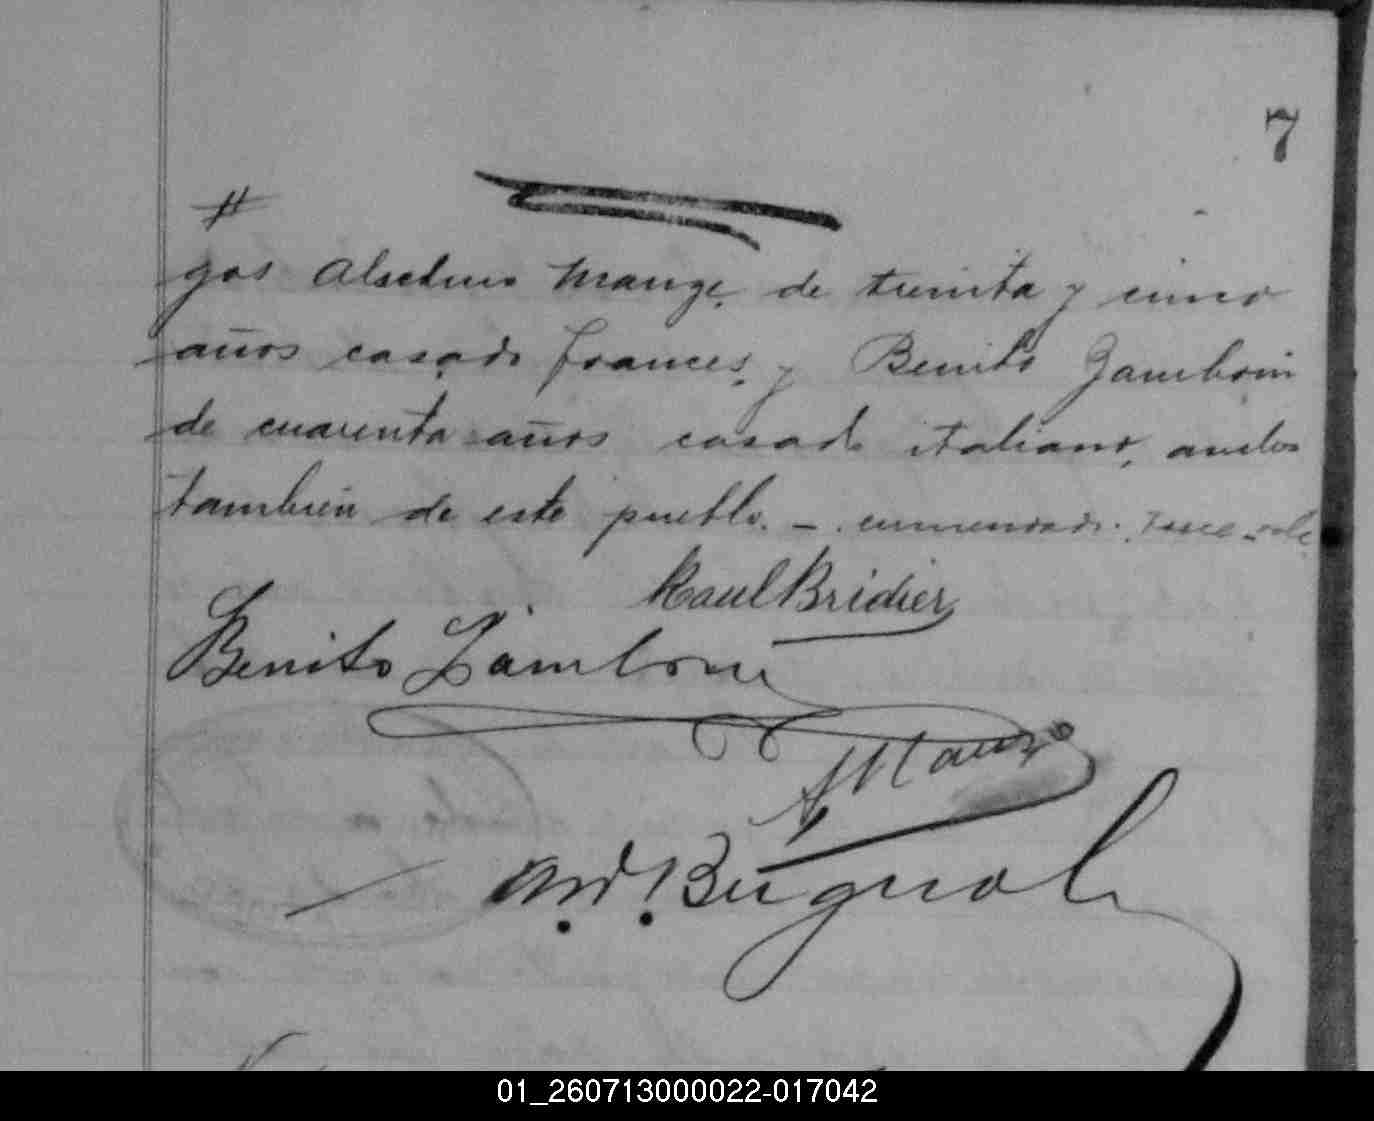 7
#
gos Alselmo Mange, de treinta y cinco
años casado frances, y Benito Zamboni
de cuarenta años casado italiano, ambos
tambien de este pueblo. - enmendado. vale
Raul Bridier
Benito Zamboni
A Mange
And. Bugnol
01_260713000022-017042